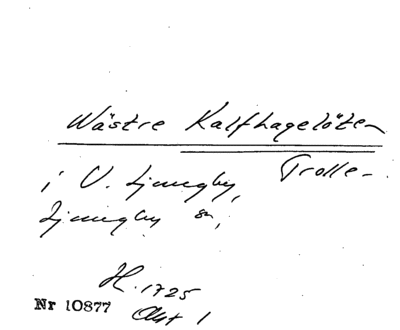 Wästre Kalfhagelöten
Trolle-
i V. Ljungby,
Ljungby sn,
H. 1725
Akt 1
Nr 10877